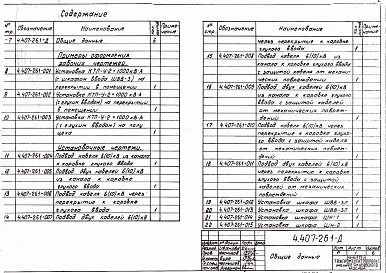 Содержание
№ стр.
Обозначение
Наименование
Приме-
чание
-7 4.407-261-Д Общие данные 6
Примеры оформления
рабочих чертежей.
8 4.407-261-001 Установка КТП-У-2×1000 кВ·А
(с шкафом ввода ШВВ-3) на
перекрытии в помещении 1
9 4.407-261-002 Установка КТП-У-2×1000 кВ·А
(с глухим вводом) на перекрытии
в помещении 1
10 4.407-261-003 Установка КТП-У-2×1000 кВ·А
(с глухим вводом) на полу
цеха 1
Установочные чертежи.
11 4.407-261-004 Подвод кабеля 6(10) кВ из канала
к коробке глухого ввода 1
12 4.407-261-005 Подвод двух кабелей 6(10) кВ
из канала к коробке
глухого ввода 1
13 4.407-261-006 Подвод кабеля 6(10) кВ через
перекрытие к коробке
глухого ввода 1
14 4.407-261-007 Подвод двух кабелей 6(10) кВ
№ стр.
Обозначение
Наименование
Приме-
чание
через перекрытие к коробке
глухого ввода 1
15 4.407-261-008 Подвод кабеля 6(10) кВ из
канала к коробке глухого ввода
с защитой кабеля от механи-
ческих повреждений 1
16 4.407-261-009 Подвод двух кабелей 6(10) кВ
из канала к коробке глухого
ввода с защитой кабелей
от механических повреж-
дений 1
17 4.407-261-010 Подвод кабеля 6(10) кВ через
перекрытие к коробке глухо-
го ввода с защитой кабеля
от механических повреж-
дений 1
18 4.407-261-011 Подвод двух кабелей 6(10) кВ
через перекрытие к коробке
глухого ввода с защитой
кабелей от механических
повреждений 1
19 4.407-261-012 Установка шкафа ШВВ-3Л 1
20 4.407-261-013 Установка шкафа ШВВ-3Л 1
21 4.407-261-014 Установка шкафа 1
22 4.407-261-015 Установка шкафа ШН-2 1
4.407-261-Д
Общие данные